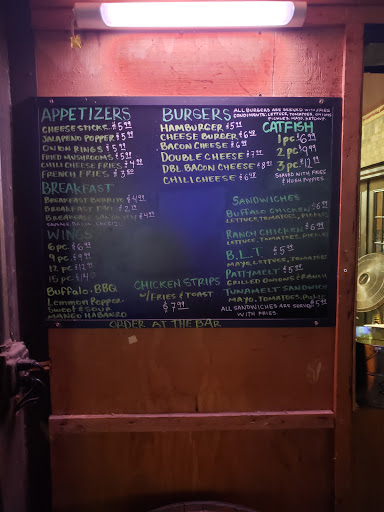 APPETIZERS
CHEESE STICKS $5.99
JALAPENO POPPER $5.99
ONION RINGS $5.99
FRIED MUSHROOMS $5.99
CHILI CHEESE FRIES $4.99
FRENCH FRIES $3.50
BREAKFAST
BREAKFAST BURRITO $4.99
BREAKFAST
BREAKFAST SANDWICH $4.99
WINGS
6 pc. $6.99
9 pc. $9.99
12 pc.
15 pc.
Buffalo. BBQ
Lemmon Pepper
Sweet & SOUR
MANGO HABANZO
BURGERS
HAMBURGER $5.99
CHEESE BURGER $6.49
BACON CHEESE
DOUBLE CHEESE $7.99
DBL BACON CHEESE $8.99
CHILI CHEESE $6.49
CHICKEN STRIPS
w/FRIES & TOAST
$7.99
ALL BURGERS ARE SERVED WITH FRIES
CONDIMENTS, LETTUCE, TOMATOES, ONIONS
PICKLES, MAYO, KETCHUP
CATFISH
1 pc $6.99
2 pc $9.99
3 pc
SERVED WITH FRIES
& HUSH PUPPIES
SANDWICHES
BUFFALO CHICKEN $6.99
LETTUCE, TOMATOES, PICKLES
RANCH CHICKEN $6.99
LETTUCE, TOMATOES, PICKLES
B.L.T $5.99
MAYO, LETTUCE, TOMATOES
PATTYMELT $5.99
GRILLED ONIONS & RANCH
TUNAMELT SANDWICH
MAYO, TOMATOES, $5.99
ALL SANDWICHES ARE SERVED
WITH FRIES.
ORDER AT THE BAR